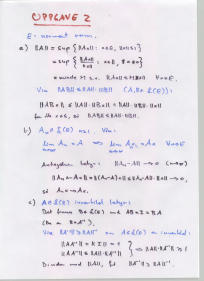 OPPGAVE 2
E: normert rom.
a) ‖A‖ = sup { ‖Ax‖ : x∈E, ‖x‖≤1 }
= sup { ‖Ax‖ / ‖x‖ : x∈E, x≠0 }
= minste M s.a. ‖Ax‖ ≤ M‖x‖ ∀x∈E.
Vis ‖AB‖ ≤ ‖A‖·‖B‖ (A,B∈ℒ(E)):
‖ABx‖ ≤ ‖A‖·‖Bx‖ ≤ ‖A‖·‖B‖·‖x‖
for alle x∈E, så ‖AB‖ ≤ ‖A‖·‖B‖.
b) Aₙ ∈ ℒ(E) Vis:
lim Aₙ = A ⇒ lim Aₙx = Ax ∀x∈E
n→∞ n→∞
Antagelsen betyr: ‖Aₙ-A‖ → 0 (n→∞)
‖Aₙx-Ax‖ = ‖(Aₙ-A)x‖ ≤ ‖Aₙ-A‖·‖x‖ → 0,
så Aₙx → Ax.
c) A∈ℒ(E) invertibel betyr:
Det finnes B∈ℒ(E) med AB=I=BA
(B=A⁻¹).
Vis ‖A⁻¹‖ ≥ ‖A‖⁻¹ A∈ℒ(E) invertibel:
‖AA⁻¹‖ = ‖I‖ = 1
‖AA⁻¹‖ ≤ ‖A‖·‖A⁻¹‖ } ⇒ ‖A‖·‖A⁻¹‖ ≥ 1
med ‖A‖, ‖A⁻¹‖ ≥ ‖A‖⁻¹.